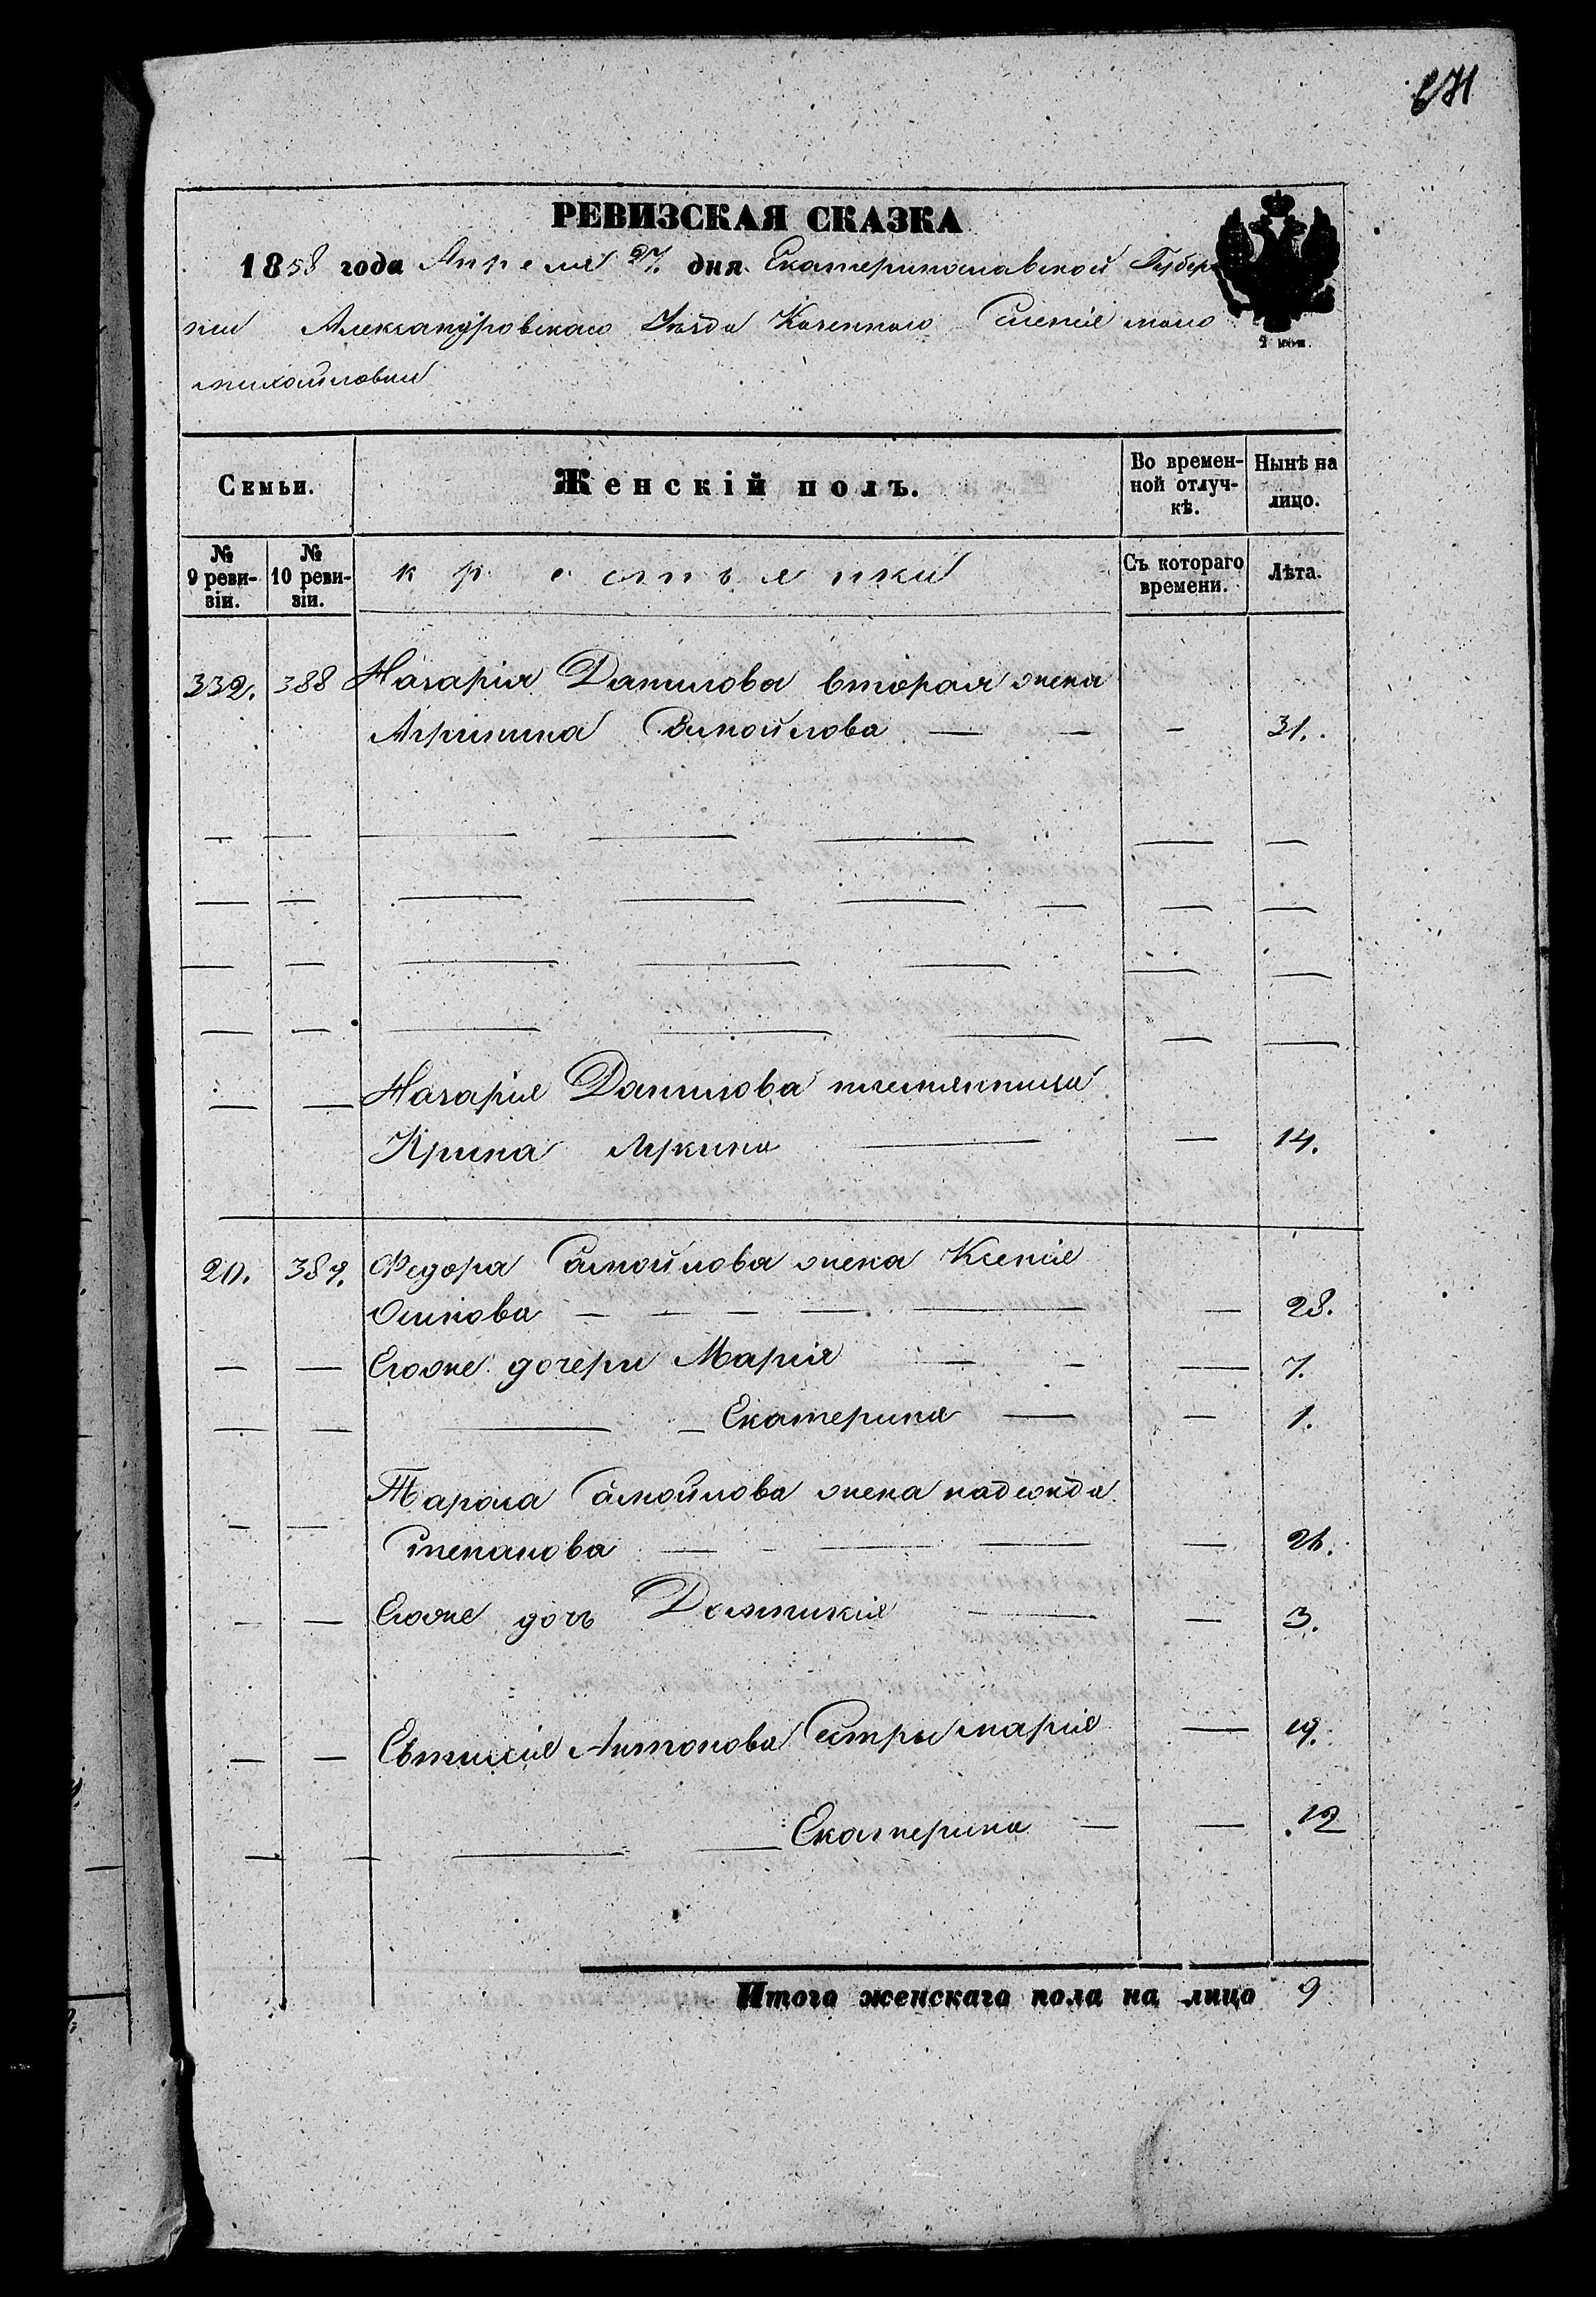 671
РЕВИЗСКАЯ СКАЗКА
1858 года Апреля 27. дня. Екатеринославской Губер
нии Александровскаго Уѣзда Казеннаго Селенія мало
михайловки
2 коп.
Семьи. Женскій полъ. Во времен- Нынѣ на
ной отлуч- лицо.
кѣ.
№ № крестьянки Съ котораго Лѣта.
9 реви- 10 реви- времени.
зіи. зіи.
332. 388 Назарія Данилова вторая жена
Агрипина Самойлова — — — 31.
Назарія Данилова племянница
Ирина — — 14.
20. 389. Федора Самойлова жена Ксенія
Осипова — — — — — — 28.
— — Егоже дочери Марія — — — 7.
— — — — Екатерина — — 1.
Тараса Самойлова жена надежда
— — Степанова — - — — — 26.
— — Егоже дочь Домникія — — 3.
— — Евтихія Антонова Сестры марія — 19.
— — — — Екатерина — — 12
Итого женскаго пола на лицо 9